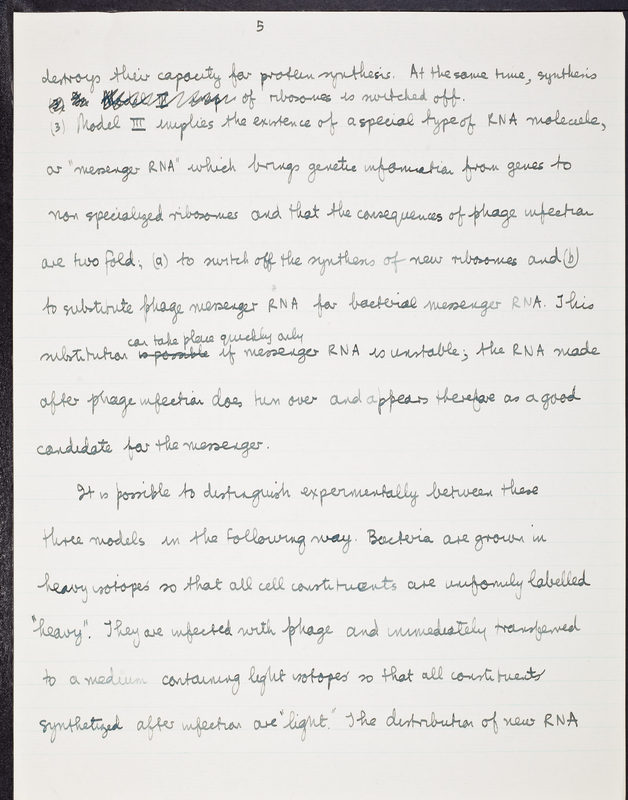 5
destroys their capacity for protein synthesis. At the same time, synthesis
of ribosomes is switched off.
(3) Model III implies the existence of a special type of RNA molecule,
or "messenger RNA" which brings genetic information from genes to
non specialized ribosomes and that the consequences of phage infection
are two fold; (a) to switch off the synthesis of new ribosomes and (b)
to substitute phage messenger RNA for bacterial messenger RNA. This
can take place quickly only
substitution is possible if messenger RNA is unstable; the RNA made
after phage infection does turn over and appears therefore as a good
candidate for the messenger.
It is possible to distinguish experimentally between these
three models in the following way. Bacteria are grown in
heavy isotopes so that all cell constituents are uniformly labelled
"heavy". They are infected with phage and immediately transferred
to a medium containing light isotopes so that all constituents
synthetized after infection are "light." The distribution of new RNA